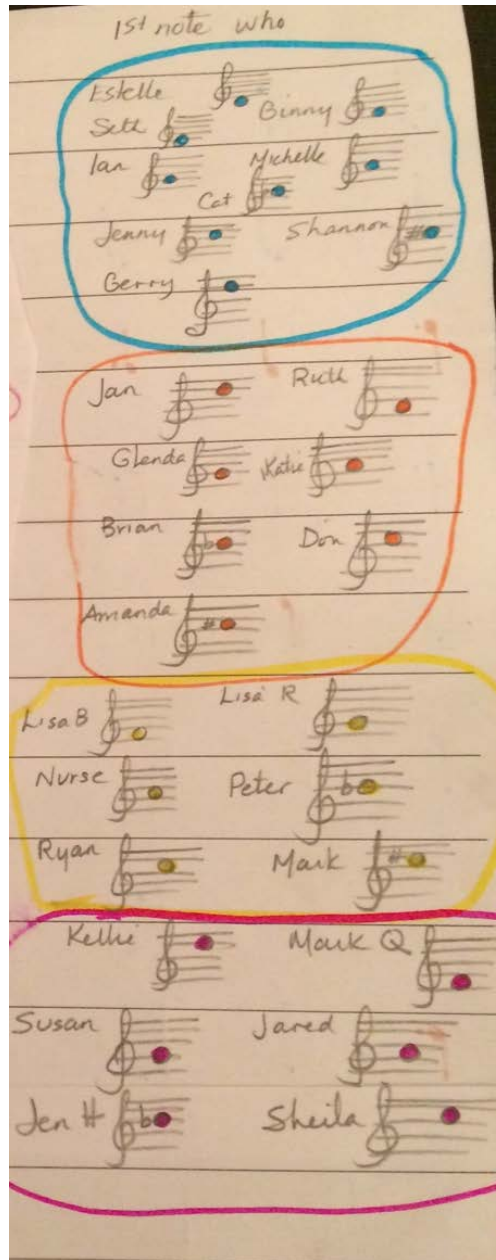 1st note who
Estelle
Ginny
Seth
Ian
Michelle
Cat
Jenny
Shannon
#
Gerry
Jan
Ruth
Glenda
Katie
Brian
b
Don
Amanda
#
Lisa B
Lisa R
Nurse
Peter
b
Ryan
Mark
#
Kellie
Mark Q
Susan
Jared
Jen H
b
Sheila